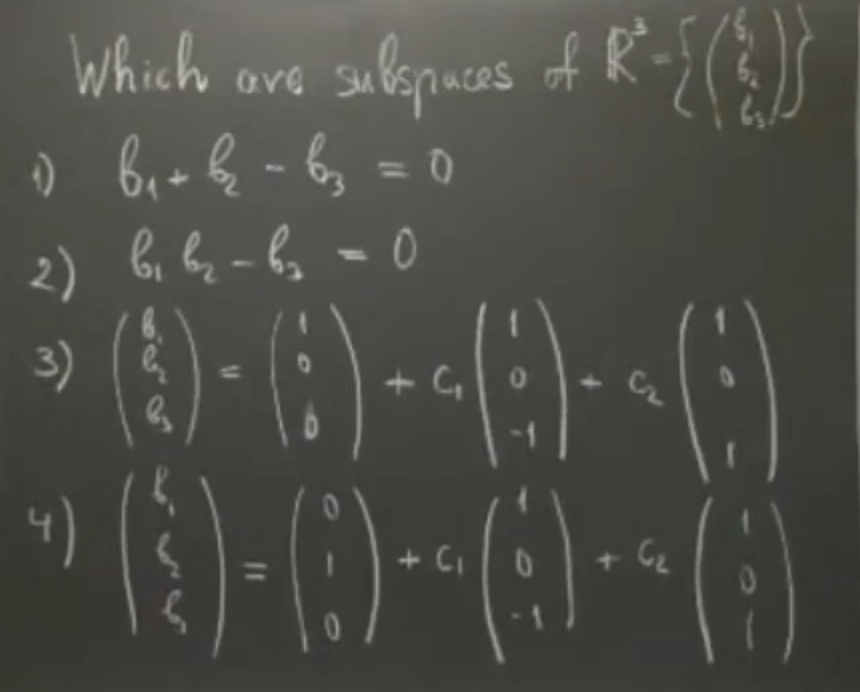 Which are subspaces of ℝ³ = {(b₁ b₂ b₃)}
1) b₁ + b₂ - b₃ = 0
2) b₁ b₂ - b₃ = 0
3) (b₁ b₂ b₃) = (1 0 0) + c₁ (1 0 -1) + c₂ (1 0 1)
4) (b₁ b₂ b₃) = (0 1 0) + c₁ (1 0 -1) + c₂ (1 0 1)